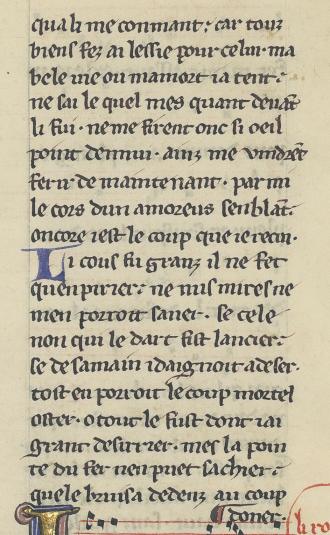 qua li me conmant. car touz
biens fez ai lessie pour celui. ma
bele vie ou ma mort ia tent.
ne sai le quel mes quant deuāt
li fui. ne me firent onc si oeil
point dennui. ainz me vindrēt
ferir de maintenant. par mi
le cors dun amoreus senblāt.
oncore iest le coup que ie recui.
Li cous fu granz il ne fet
quenpirier. ne nus mires ne
men porroit saner. se cele
non qui le dart fist lancier.
se de sa main i daignoit adeser.
tost en porroit le coup mortel
oster. o tout le fust dont iai
grant desirrier. mes la poin
te du fer nen puet sachier.
quele bruisa dedenz au coup
doner.